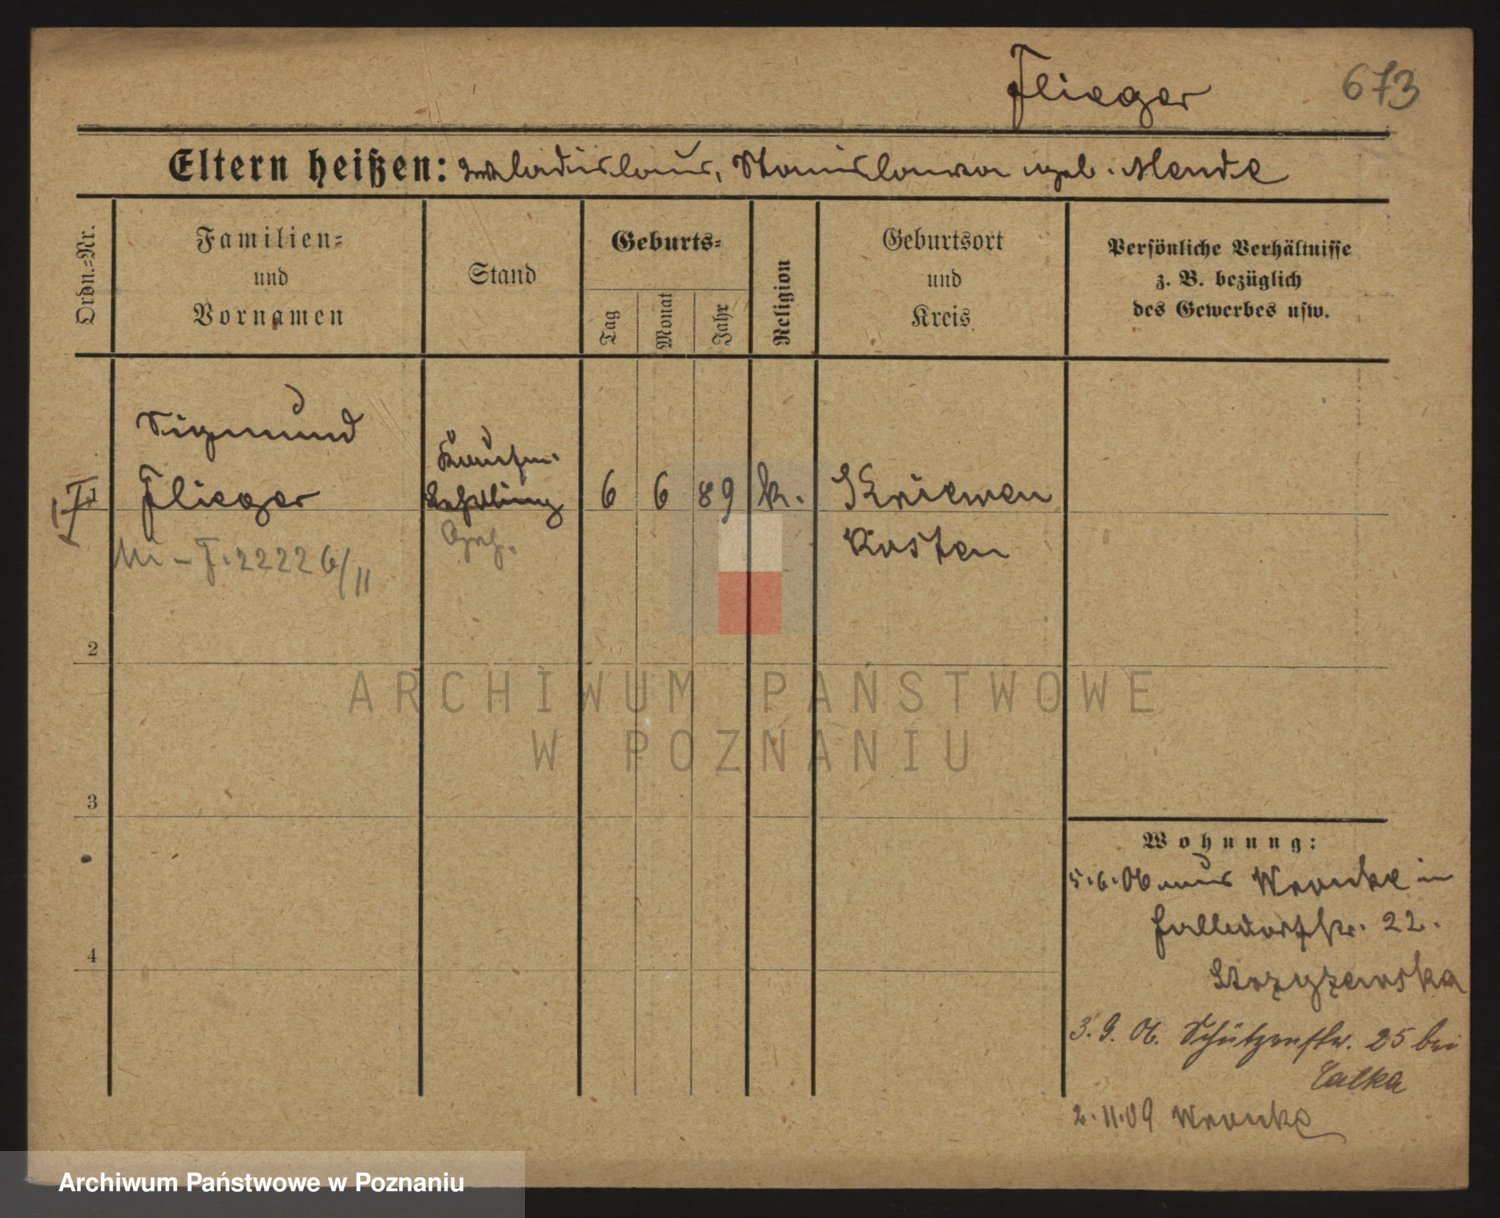 Flieger 673
Eltern heißen: Wladislaus, Stanislawa geb. Mende
Ordn.=Nr.
Familien=
und
Vornamen
Stand
Geburts=
Tag
Monat
Jahr
Religion
Geburtsort
und
Kreis
Persönliche Verhältnisse
z. B. bezüglich
des Gewerbes usw.
Sigmund
Kaufm.
1 Flieger Lehrling 6 6 89 k. Kriewen
Kosten
22226/11
2
3
4
ARCHIWUM PAŃSTWOWE
W POZNANIU
Wohnung:
5.6.06 aus Wronke in
22.
3.9.06. Schützenstr. 25 bei
Calka
2.11.09 Wronke
Archiwum Państwowe w Poznaniu